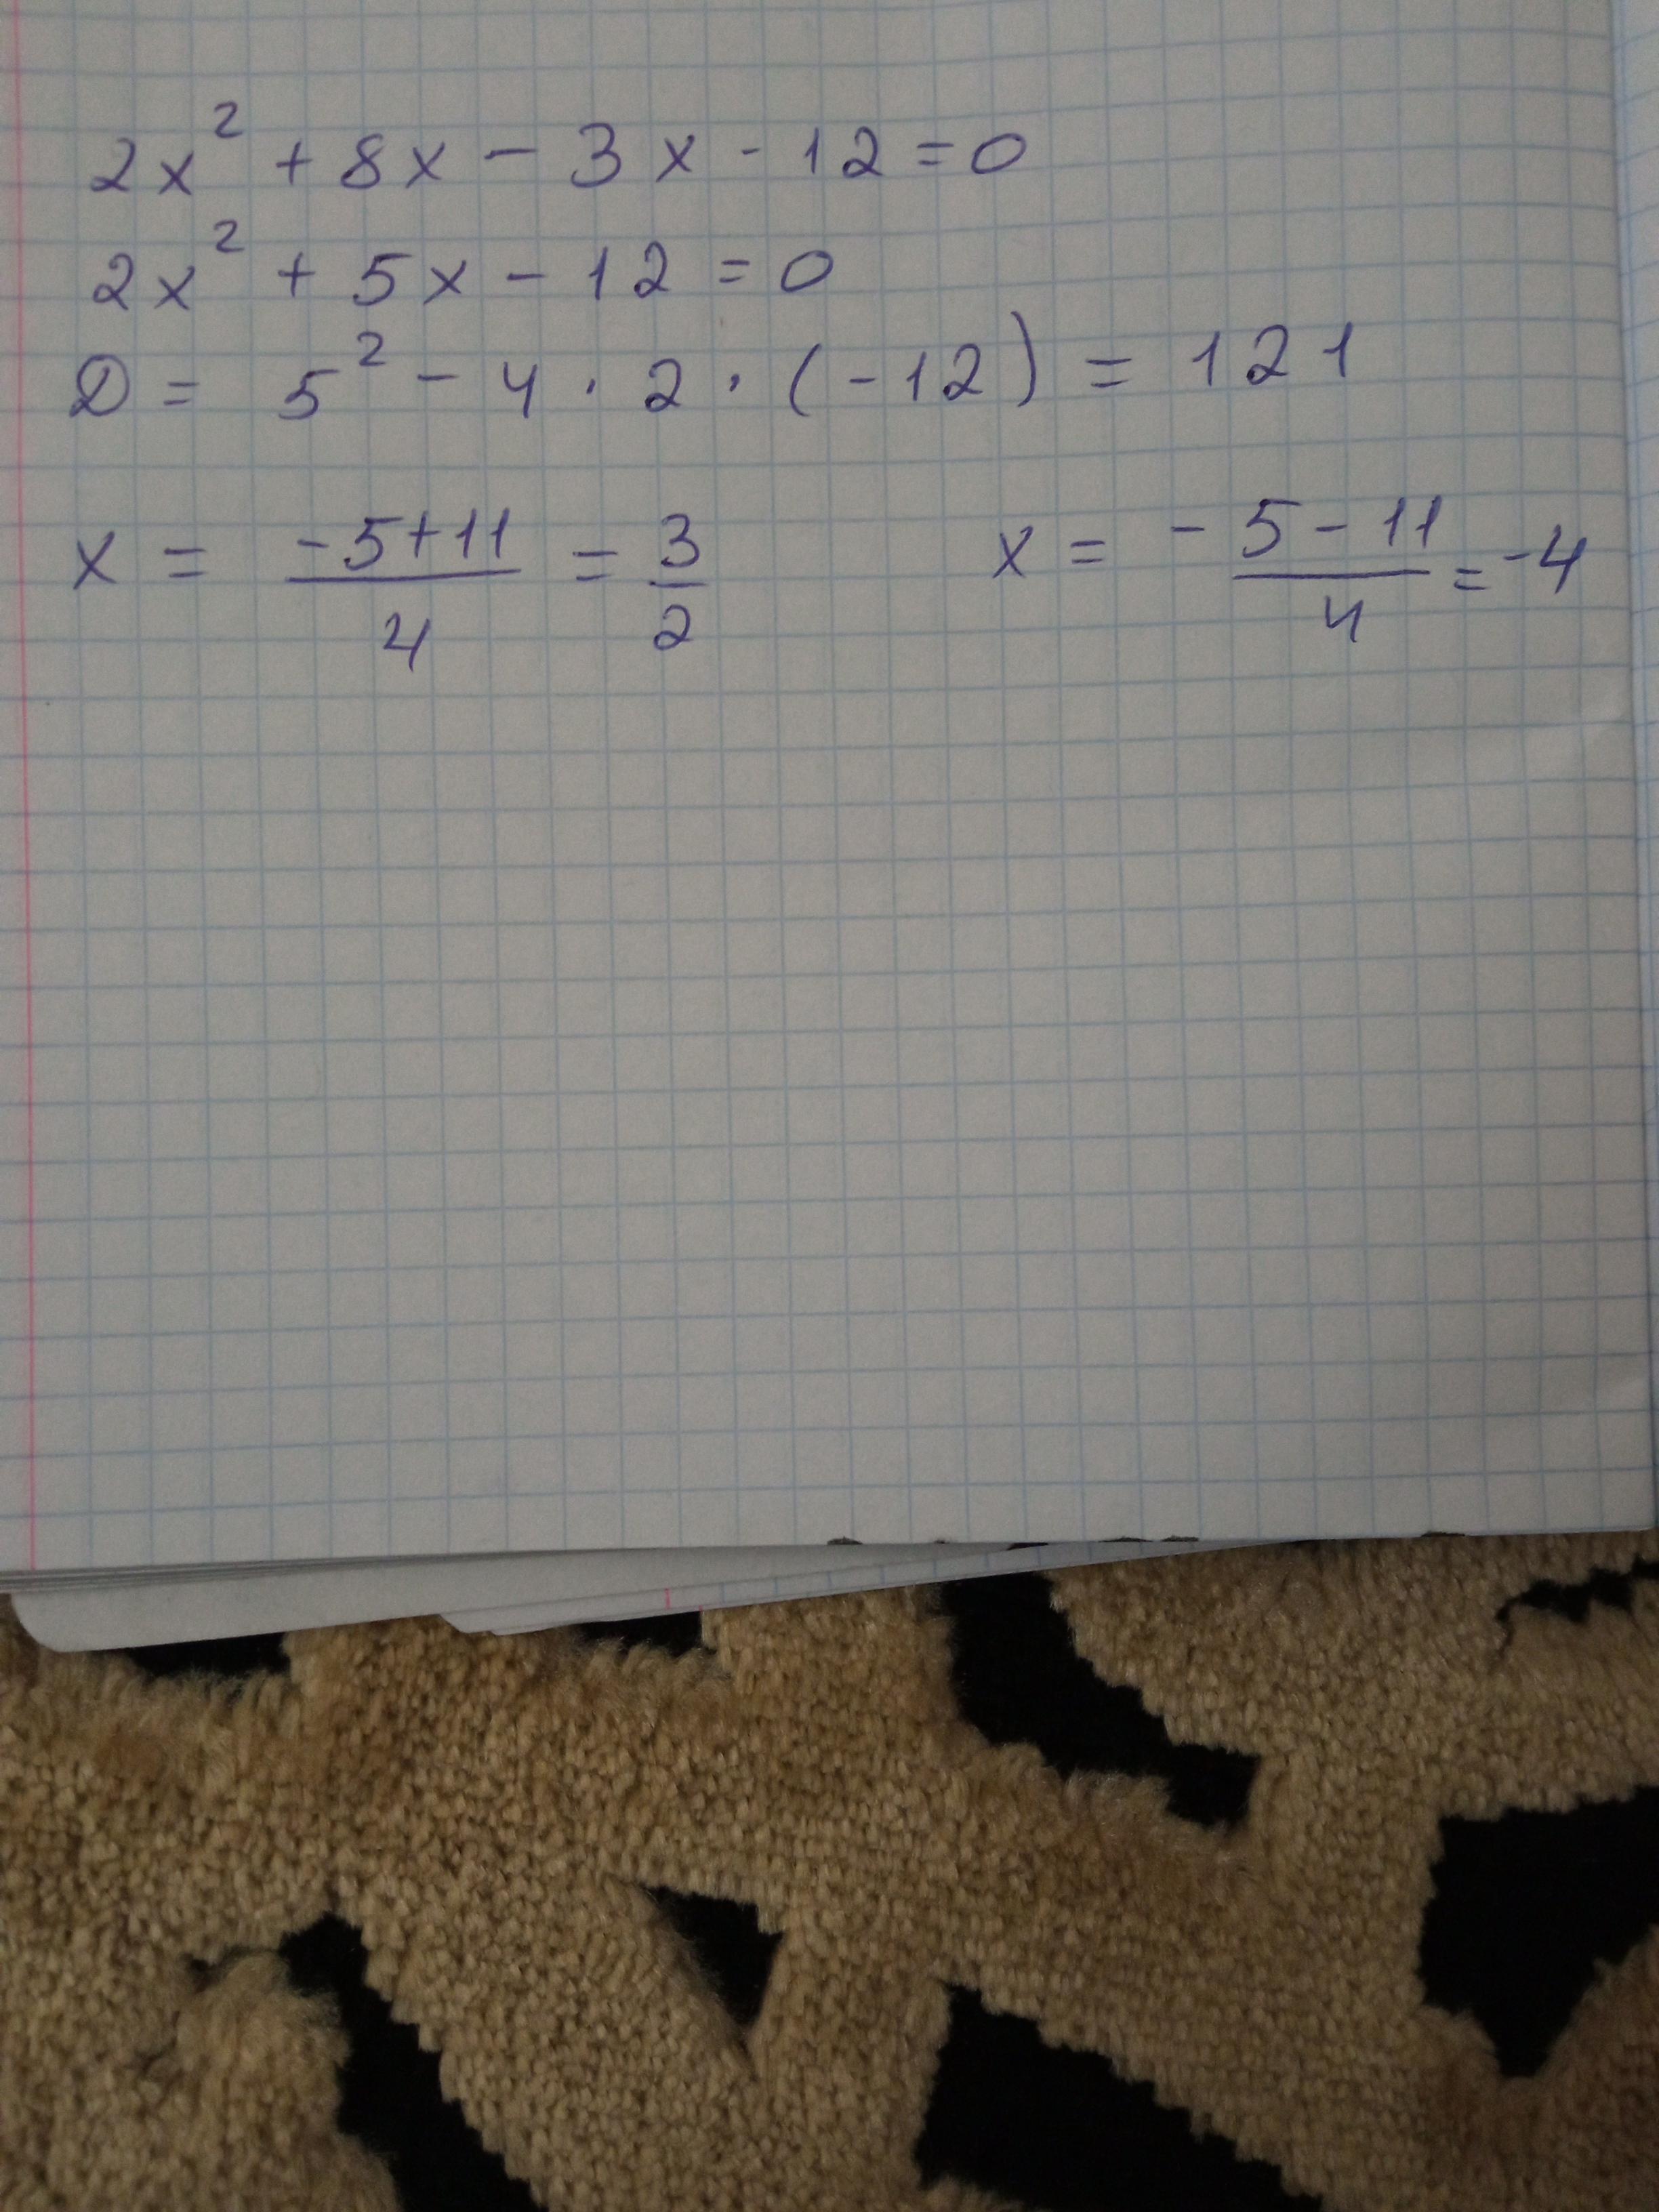 2x² + 8x - 3x - 12 = 0
2x² + 5x - 12 = 0
D = 5² - 4 · 2 · (-12) = 121
x = (-5+11)/4 = 3/2    x = (-5-11)/4 = -4